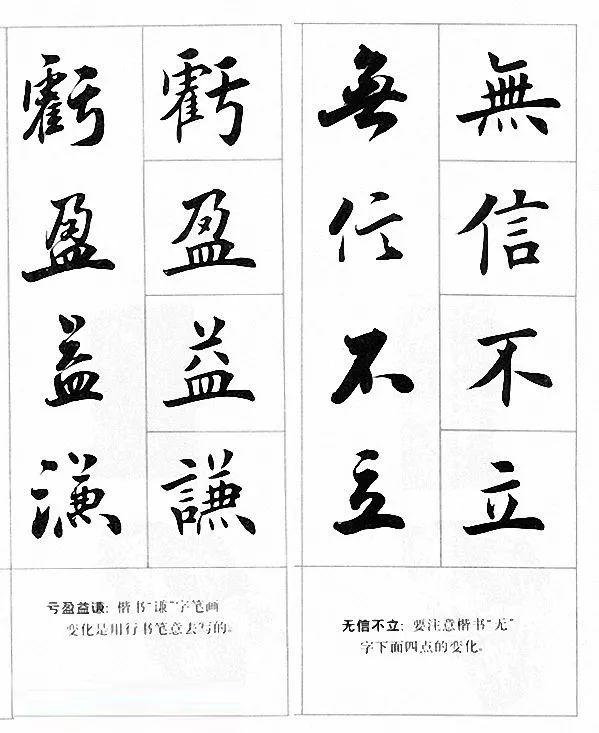 無信不立
無信不立
无信不立：要注意楷书“无”
字下面四点的变化。
虧盈益謙
虧盈益謙
亏盈益谦：楷书“谦”字笔画
变化是用行书笔意去写的。